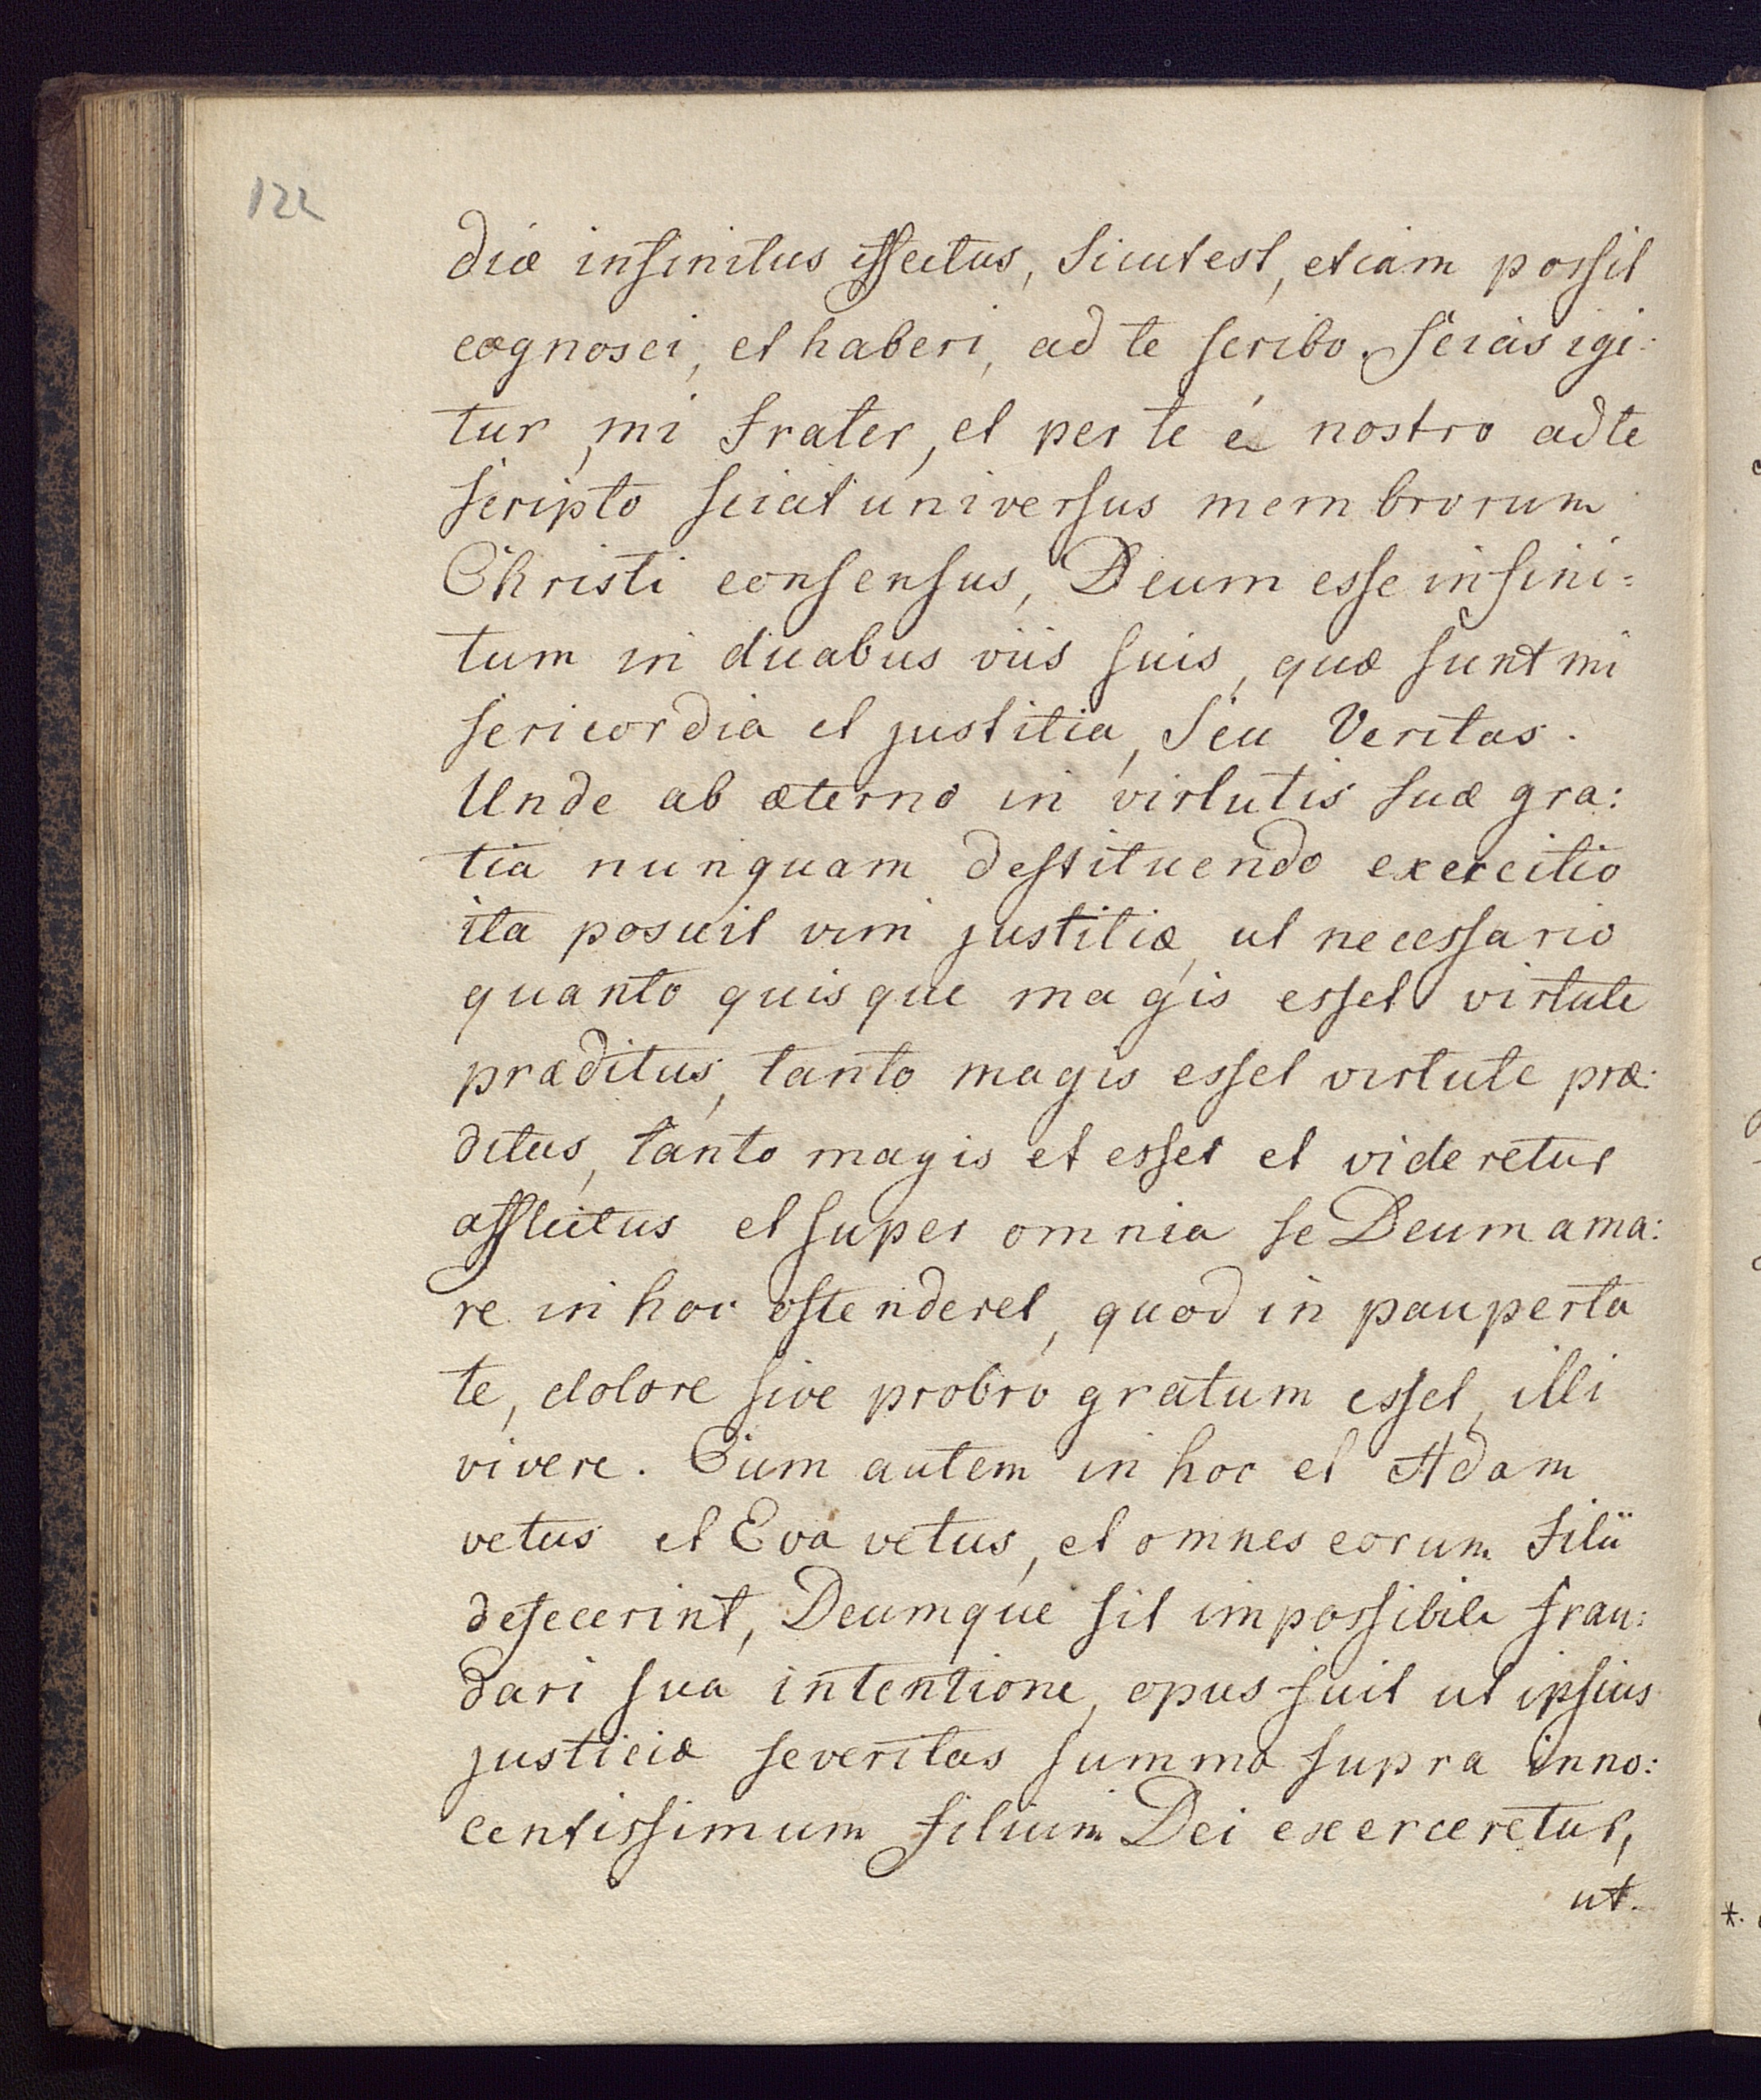 122
diæ infinitus effectus, sicut est, etiam possit
cognosci, et haberi, ad te scribo. Scias igi:
tur, mi Frater, et per te é nostro ad te
scripto sciat universus membrorum
Christi consensus, Deum esse infini=
tum in duabus viis suis, quæ sunt mi
sericordia et justitia, seu Veritas.
Unde ab æterno in virtutis suæ gra:
tia nunquam destituendo exercitio
ita posuit vim justitiæ, ut necessario
quanto quisque magis esset virtute
præditus, tanto magis esset virtute præ:
ditus, tanto magis et esset et videretur
afflictus et super omnia se Deum ama:
re in hoc ostenderet, quod in pauperta
te, dolore sive probro gratum esset, illi
vivere. Cum autem in hoc et Adam
vetus et Eva vetus, et omnes eorum Filii
defecerint, Deumque sit impossibile frau:
dari sua intentione, opus fuit ut ipsius
justiciæ severitas summa supra inno:
centissimum Filium Dei exerceretur,
ut.
*.